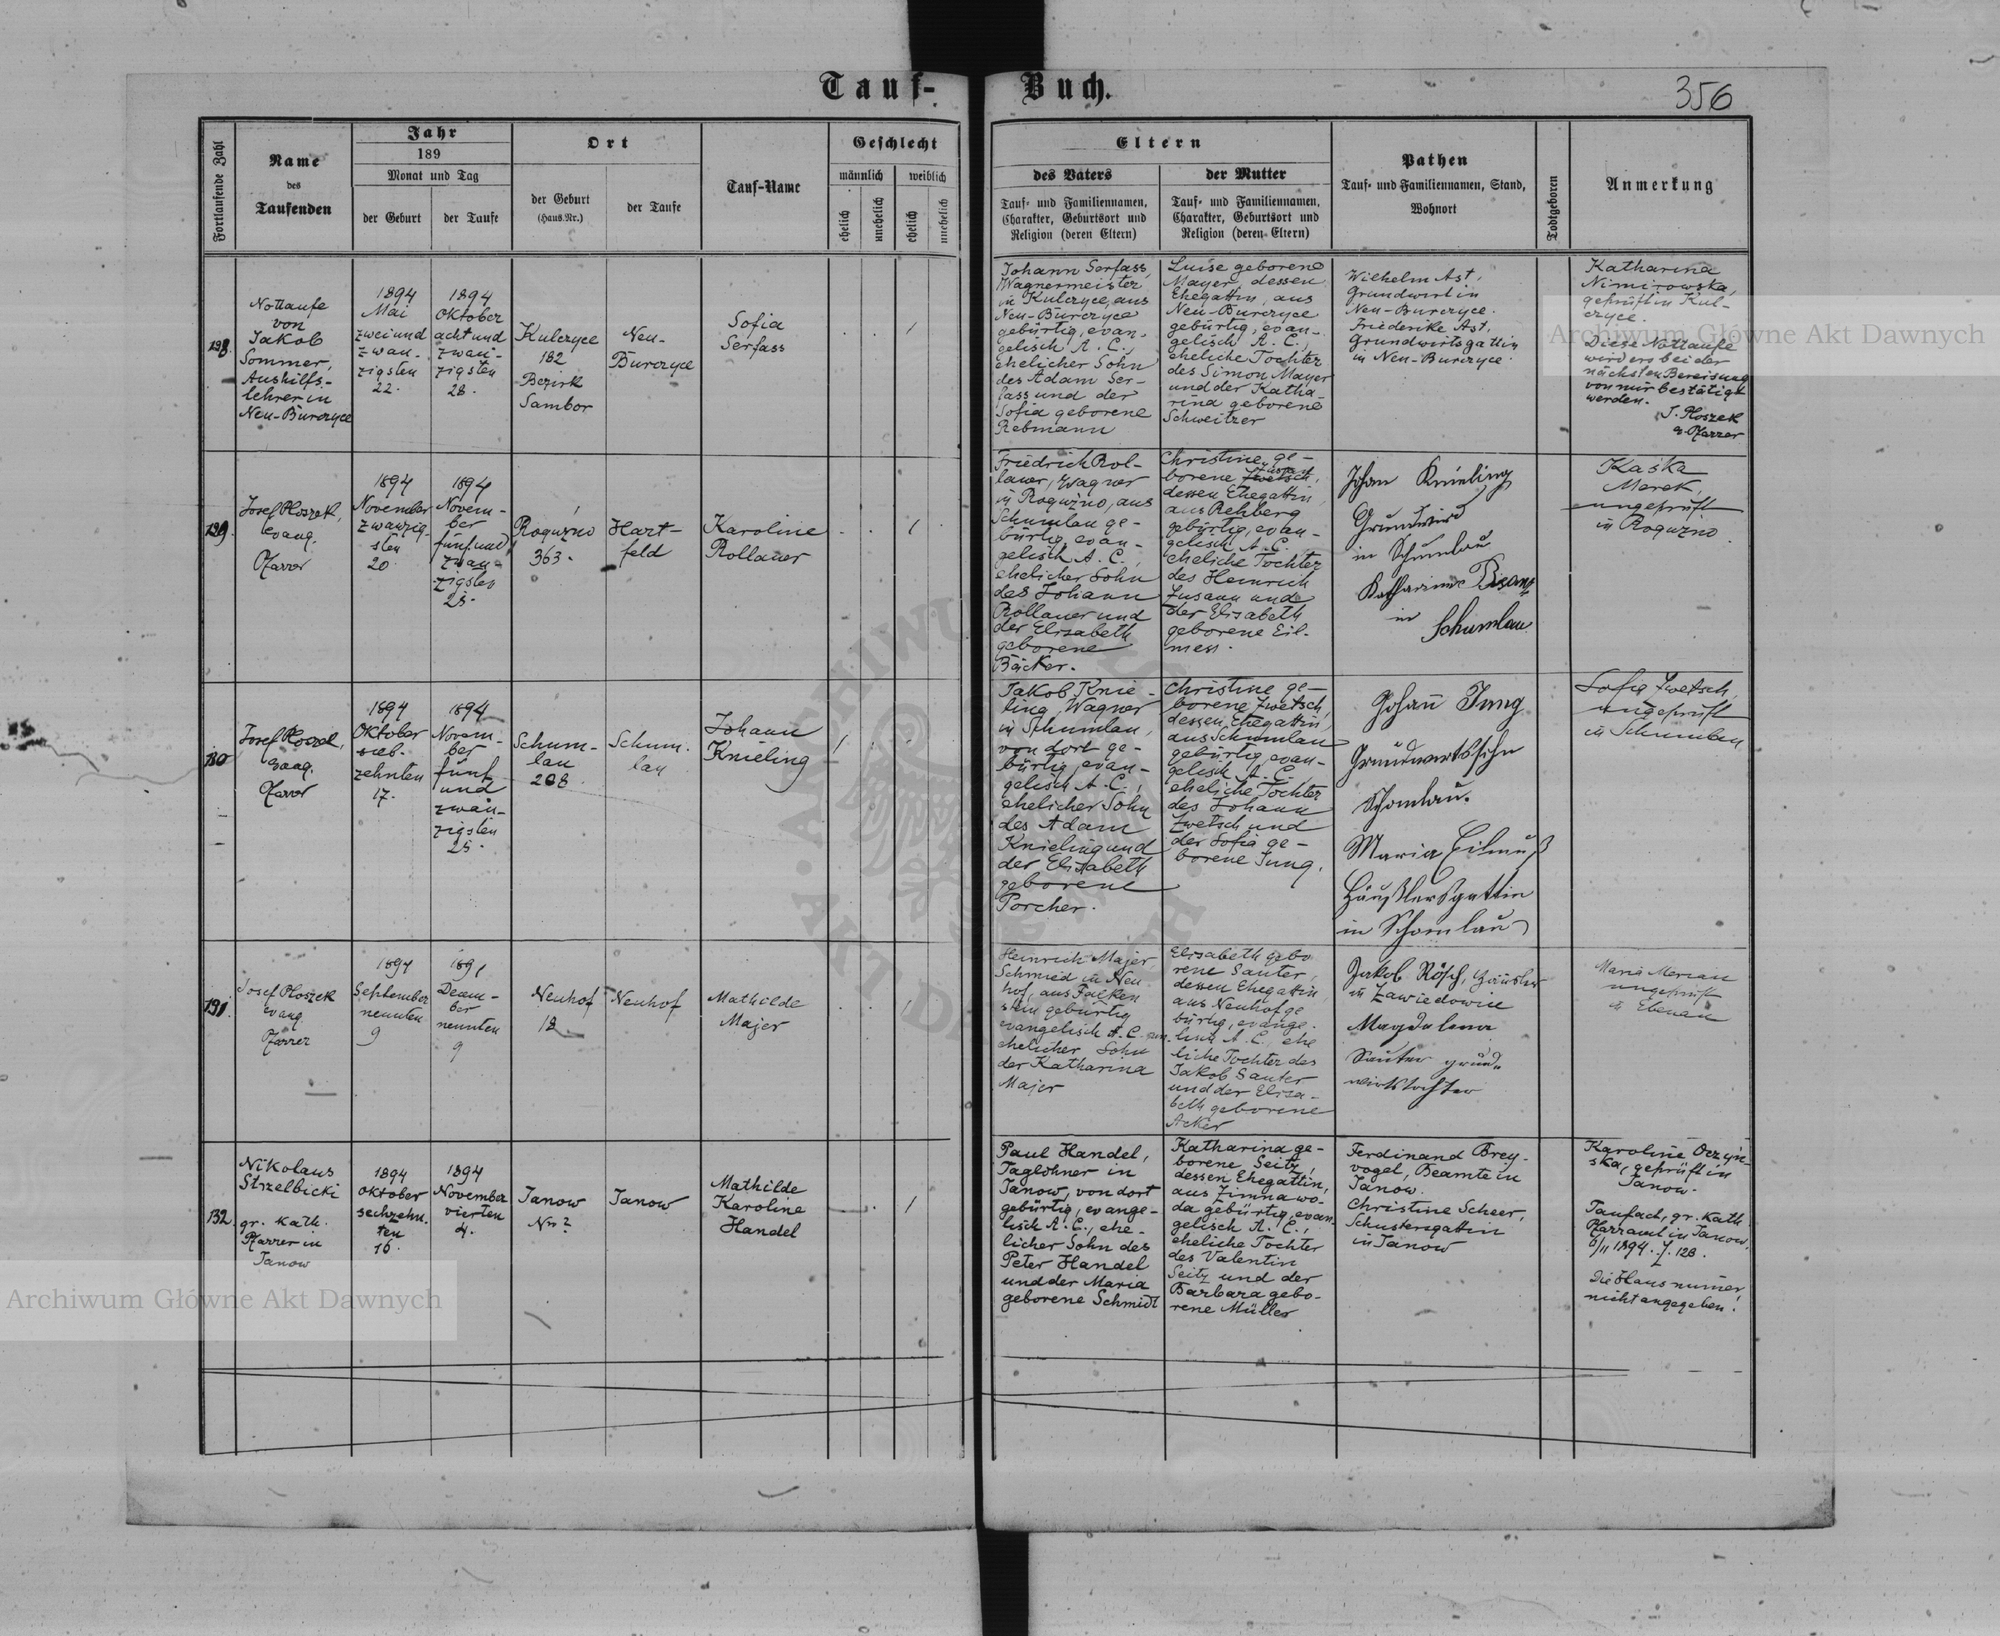 Tauf-
Buch.
356
Fortlaufende Zahl
Name
des
Taufenden
Jahr
189
Monat und Tag
der Geburt
der Taufe
Ort
der Geburt
(Haus-Nr.)
der Taufe
Tauf-Name
Geschlecht
männlich
weiblich
ehelich
unehelich
ehelich
unehelich
Eltern
des Vaters
Tauf- und Familiennamen,
Charakter, Geburtsort und
Religion (deren Eltern)
der Mutter
Tauf- und Familiennamen,
Charakter, Geburtsort und
Religion (deren Eltern)
Pathen
Tauf- und Familiennamen, Stand,
Wohnort
Todtgeboren
Anmerkung
128.
Nottaufe
von
Jakob
Sommer,
Aushilfs-
lehrer in
Neu-Burczyce
1894
Mai
zweiund
zwan-
zigsten
22.
1894
Oktober
achtund
zwan-
zigsten
28.
Kulczyce
182
Bezirk
Sambor
Neu-
Burczyce
Sofia
Serfass
Johann Serfass,
Wagnermeister
in Kulczyce, aus
Neu-Burczyce
gebürtig, evan-
gelisch A. C.,
ehelicher Sohn
des Adam Ser-
fass und der
Sofia geborene
Rebmann
Luise geborene
Mayer, dessen
Ehegattin, aus
Neu-Burczyce
gebürtig, evan-
gelisch A. C.,
eheliche Tochter
des Simon Mayer
und der Katha-
rina geborene
Schweitzer
Wilhelm Ast,
Grundwirt in
Neu-Burczyce.
Friederike Ast,
Grundwirtsgattin
in Neu-Burczyce.
Katharina
Nimirowska,
geprüft in Kul-
czyce.
Diese Nottaufe
wird erg bei der
nächsten Bereisung
von mir bestätigt
werden.
J. Ploszek
e. Pfarrer
129.
Josef Ploszek,
evang.
Pfarrer
1894
November
zwanzig-
sten
20.
1894
Novem-
ber
fünfund
zwan-
zigsten
25.
Roguzno
363.
Hart-
feld
Karoline
Rollauer
Friedrich Rol-
lauer, Wagner
in Roguzno, aus
Schumlau ge-
bürtig, evan-
gelisch A. C.,
ehelicher Sohn
des Johann
Rollauer und
der Elisabeth
geborene
Bäcker.
Christine ge-
borene Zwetsch,
Zusann
dessen Ehegattin
aus Rehberg
gebürtig, evan-
gelisch A. C.
eheliche Tochter
des Heinrich
Zusann und
der Elisabeth
geborene Eil-
mess.
Johan Knieling
Grundwird
in Schumlau
Katharina Bisanz
in
Schumlau
Kaśka
Marek,
ungeprüft
in Roguzno.
130.
Josef Ploszek,
evang.
Pfarrer
1894
Oktober
sieb-
zehnten
17.
1894
Novem-
ber
fünf
und
zwan-
zigsten
25.
Schum-
lau
208
Schum-
lau
Johann
Knieling
Jakob Knie-
ling, Wagner
in Schumlau,
von dort ge-
bürtig, evan-
gelisch A. C.,
ehelicher Sohn
des Adam
Knieling und
der Elisabeth
geborene
Porcher.
Christine ge-
borene Zwetsch,
dessen Ehegattin,
aus Schumlau
gebürtig, evan-
gelisch A. C.
eheliche Tochter
des Johann
Zwetsch und
der Sofia ge-
borene Jung.
Johan Jung
Grundwirtssohn
Schomlau.
Maria Eilmuß
Häußlersgattin
in Schomlau
Sofia Zwetsch,
ungeprüft
in Schumlau
131.
Josef Ploszek
evang
Pfarrer
1894
September
neunten
9
1894
Dezem-
ber
neunten
9
Neuhof
18
Neuhof
Mathilde
Majer
Heinrich Majer,
Schmied in Neu
hof, aus Falken
stein gebürtig
evangelisch A. C.
ehelicher Sohn
der Katharina
Majer
Elisabeth gebo
rene Sauter,
dessen Ehegattin,
aus Neuhof ge
bürtig, evange-
lisch A. C., ehe
liche Tochter des
Jakob Sauter
und der Elisa-
beth geborene
Acker
Jakob Rösch, Häusler
in Zawiedowice
Magdalena
Sauter grund-
wirtstochter
Maria Merian
ungeprüft
in Ebenau
132.
Nikolaus
Strzelbicki
gr. kath.
Pfarrer in
Janow
1894
Oktober
sechzehn-
ten
16.
1894
November
vierten
4.
Janow
Nro ?
Janow
Mathilde
Karoline
Handel
Paul Handel,
Taglöhner in
Janow, von dort
gebürtig, evange-
lisch A. C., ehe-
licher Sohn des
Peter Handel
und der Maria
geborene Schmidt
Katharina ge-
borene Seitz,
dessen Ehegattin,
aus Zimna wo-
da gebürtig, evan-
gelisch A. C.,
eheliche Tochter
des Valentin
Seitz und der
Barbara gebo-
rene Müller
Ferdinand Brey-
vogel, Beamte in
Janow.
Christine Scheer,
Schustersgattin
in Janow
Karoline Oczyń-
ska, geprüft in
Janow.
Taufact, gr. kath
Pfarramt in Janow.
6/11 1894. Z. 128.
die Hausnummer
nicht angegeben!
Archiwum Główne Akt Dawnych
Archiwum Główne Akt Dawnych